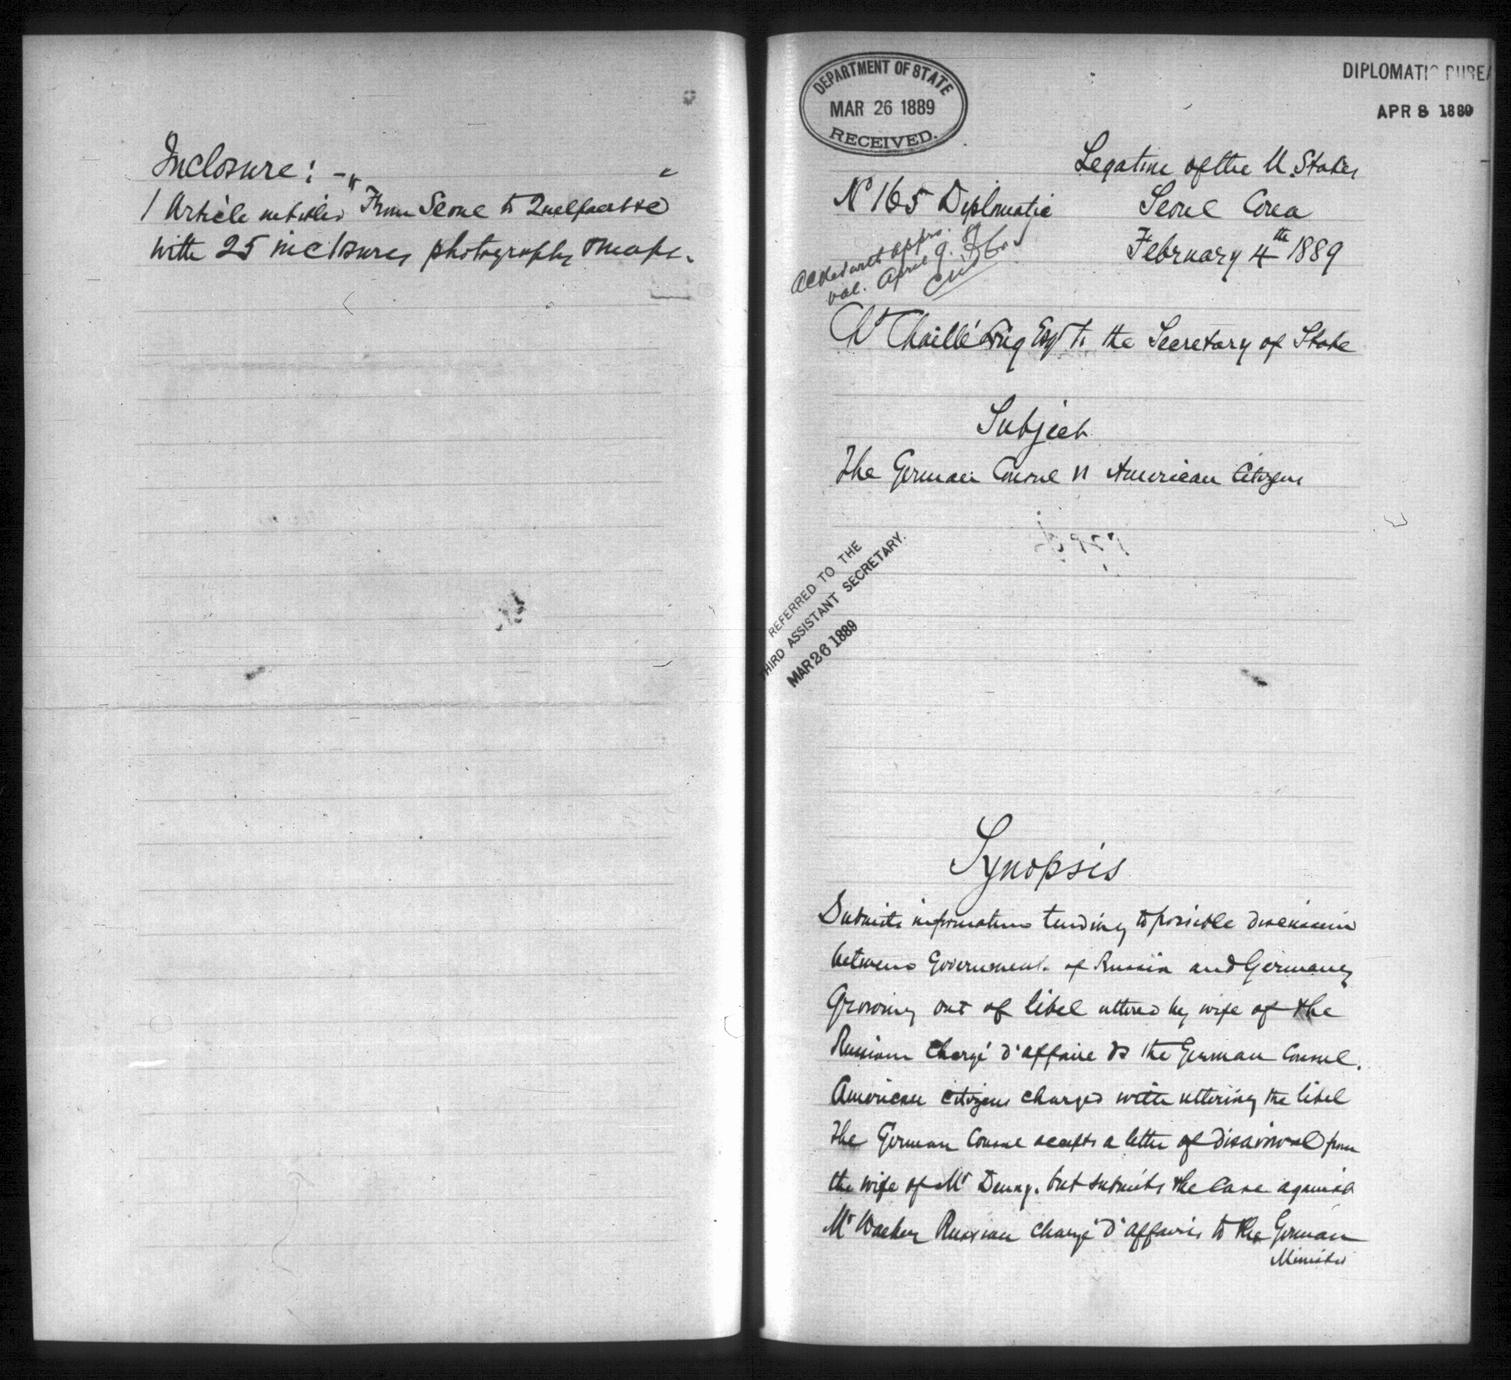 Inclosure: -
1 Article entitled "From Seoul to Quelpaert &c"
with 25 inclosures, photographs & maps.
DEPARTMENT OF STATE
MAR 26 1889
RECEIVED.
DIPLOMATIC BUREA
APR 8 1889
Legation of the U. States
No 165 Diplomatic
Seoul Corea
February 4th 1889
April 9.
Ch Chaillé Long Esqr to the Secretary of State
Subject
The German Consul vs American Citizens
REFERRED TO THE
THIRD ASSISTANT SECRETARY.
MAR 26 1889
Synopsis
Submits information tending to possible discussion
between Governments of Russia and Germany
Growing out of libel uttered by wife of the
Russian Chargé d'affaire vs the German Consul.
American citizens charged with uttering the libel
The German Consul accepts a letter of disavowal from
the wife of Mr Denny. but submits the Case against
Mr Waeber Russian chargé d'affaires to the German
Minister